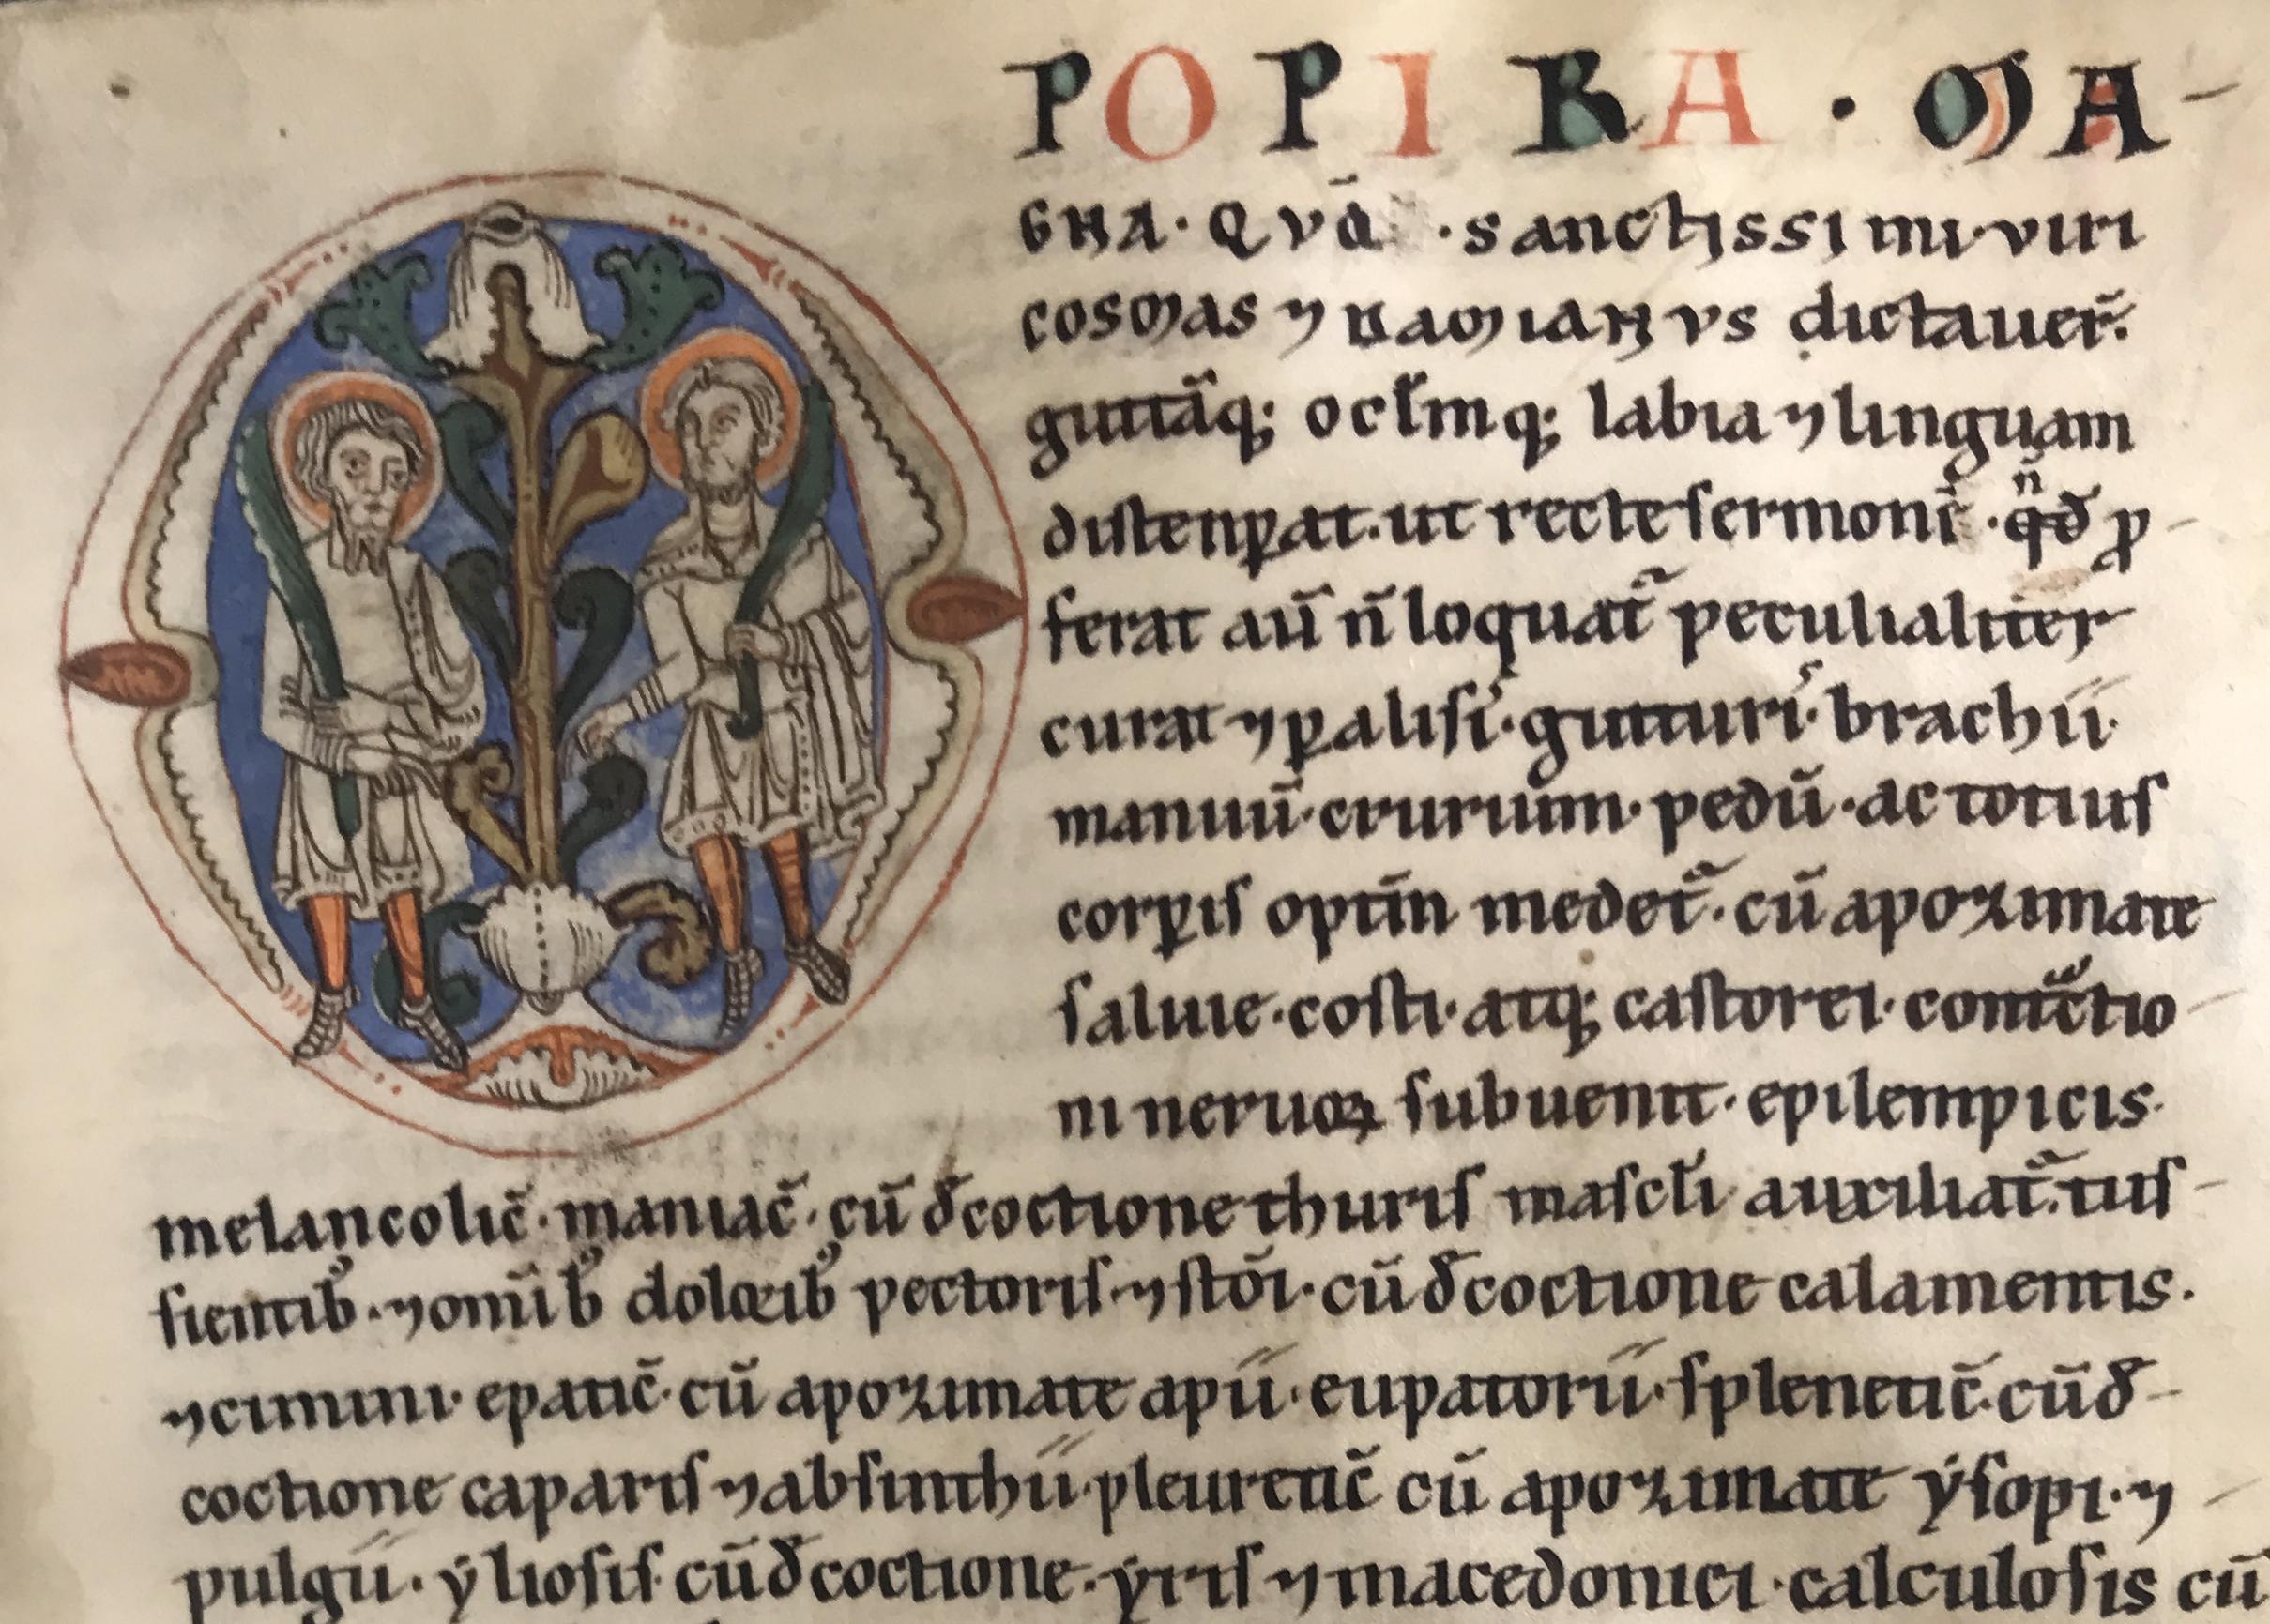 POPIRA · MA
GNA · QVā · sanctissimi · viri
cosmas ⁊ Damianus dictauer̄.
guttāq; oc̄lmq; labia ⁊ linguam
distenꝑat. ut recte sermonē · qd̄ ꝓ
ferat aū n̄ loquat᷑ peculialiter
curat ⁊ ꝑalisi᷒ · gutturi᷒ · brachii ·
manuū · crurum · pedū · ac totius
corꝑis optīn medet᷑ · cū apozimate
saluie · costi · atq; castorei · conīctio
ni neruoꝝ subuenit · epilempicis ·
melancolic̄ · maniac̄ · cū d̄coctione thuris mascl̄i auxiliat᷑. tus
sientib᷒ · ⁊ omīb᷒ dolorib᷒ pectoris · ⁊ stōi · cū d̄coctione calamentis .
⁊ cimini · epatic̄ · cū apozimate apii · eupatorii · splenetic̄ · cū d̄
coctione caparis ⁊ absinthii · pleuretic̄ cū apozimate ẏsopi · ⁊
pulgii · ẏliosis cū d̄coctione · ẏris ⁊ macedonici · calculosis cū